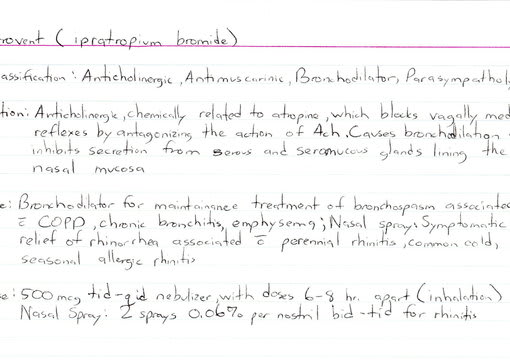 rovent (ipratropium bromide)
assification: Anticholinergic, Antimuscarinic, Bronchodilator, Parasympatholy
tion: Anticholinergic, chemically related to atropine, which blocks vagally med
reflexes by antagonizing the action of Ach. Causes bronchodilation
inhibits secretion from serous and seromucous glands lining the
nasal mucosa
e: Bronchodilator for maintainance treatment of bronchospasm associated
c̄ COPD, chronic bronchitis, emphysema; Nasal spray: Symptomatic
relief of rhinorrhea associated c̄ perennial rhinitis, common cold,
seasonal allergic rhinitis
e: 500 mcg tid-qid nebulizer, with doses 6-8 hr. apart (inhalation)
Nasal Spray: 2 sprays 0.06% per nostril bid-tid for rhinitis